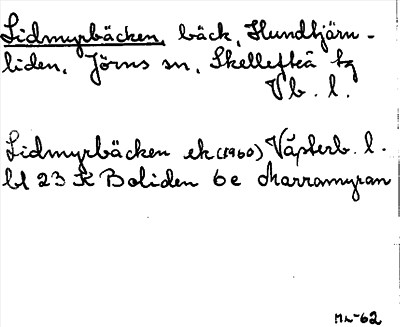 Lidmyrbäcken, bäck, Hundtjärn-
liden, Jörns sn, Skellefteå tg
Vb. l.
Lidmyrbäcken ek (1960) Västerb. l.
bl 23 K Boliden 6e Marramyran
-62